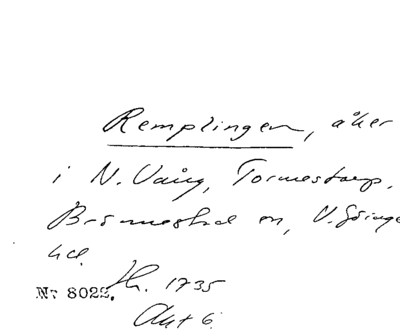 Remplingen, åker
i N. Vång, Tormestorp,
Brönnestad sn, V. Göinge
hd.
Nr 8022. Lh. 1735
Akt 6